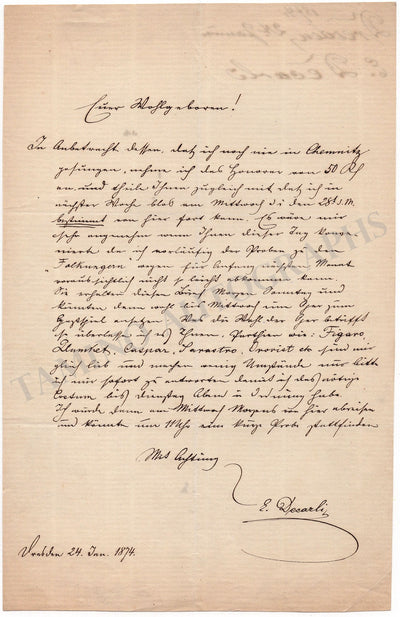 Euer Wohlgeboren!
In Anbetracht dessen, daß ich noch nie in Chemnitz
gesungen, nehme ich das Honorar von 50 Rh
an und theile Ihnen zugleich mit daß ich in
nächster Woche blos am Mittwoch d i den 28 d. M.
bestimmt von hier fort kann. Es wäre mir
sehr angenehm wenn Ihnen dieser Tag konve-
nierte da ich vorläufig der Proben zu den
Folkungern wegen für Anfang nächsten Monat
voraussichtlich nicht so leicht abkommen kann.
Sie erhalten diesen Brief Morgen Sonntag und
könnten dann noch bis Mittwoch eine Oper zum
Gastspiel ansetzen. Was die Wahl der Oper betrifft
so überlasse ich es Ihnen. Parthien wie: Figaro,
Plumket, Caspar, Sarastro, Orovist etc sind mir
gleich lieb und machen wenig Umstände nur bitte
ich mir sofort zu antworten damit ich das nötige
Costum bis Dienstag Abend in Ordnung habe.
Ich würde dann am Mittwoch Morgens von hier abreisen
und könnte um 11 Uhr eine kurze Probe stattfinden
Mit Achtung
E. Decarli
Dresden 24. Jan. 1874.
TAMINO AUTOGRAPHS